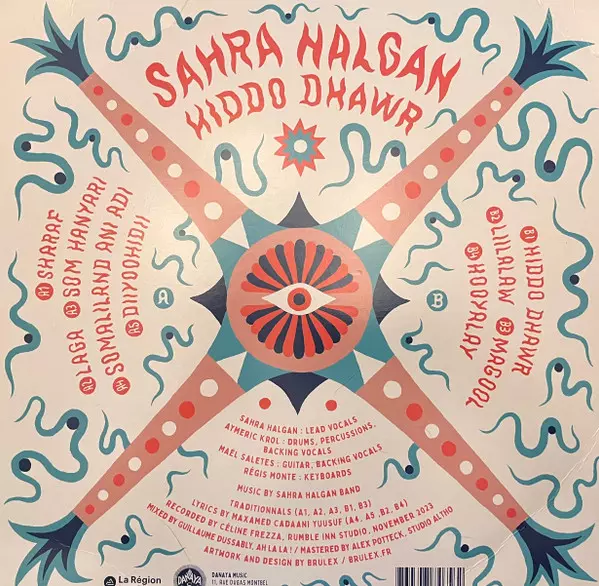 SAHRA HALGAN
HIDDO DHAWR
A1 SHARAF
A2 LAGA A3 SOM HANYARI
A4 SOMALILAND ANI ADI
A5 DIIYOOHIDII
A
B1 HIDDO DHAWR
B2 LIILALAW B3 MAGOOL
B4 HOBALAY
B
SAHRA HALGAN : LEAD VOCALS
AYMERIC KROL : DRUMS, PERCUSSIONS,
BACKING VOCALS
MAEL SALETES : GUITAR, BACKING VOCALS
RÉGIS MONTE : KEYBOARDS
MUSIC BY SAHRA HALGAN BAND
TRADITIONNALS (A1, A2, A3, B1, B3)
LYRICS BY MAXAMED CADAANI YUUSUF (A4, A5 ,B2, B4)
RECORDED BY CÉLINE FREZZA, RUMBLE INN STUDIO, NOVEMBER 2023
MIXED BY GUILLAUME DUSSABLY, AH LA LA ! / MASTERED BY ALEX POTTECK, STUDIO ALTHO
ARTWORK AND DESIGN BY BRULEX / BRULEX.FR
La Région
DANAYA
DANAYA MUSIC
11, RUE DUGAS MONTBEL